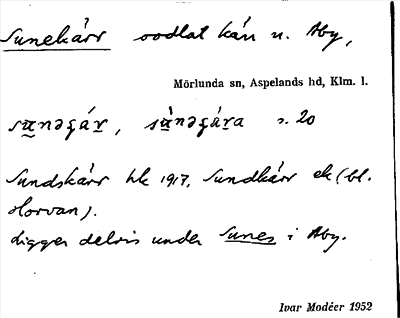 Sunekärr odlat kärr n. Åby,
Mörlunda sn, Aspelands hd, Klm. l.
su̲nəʒár̲, sù̲nəʒár̲a s. 20
Sundskärr hk 1917, Sundkärr ek (bl.
Horvan).
Ligger delvis under Sunes i Åby.
Ivar Modéer 1952